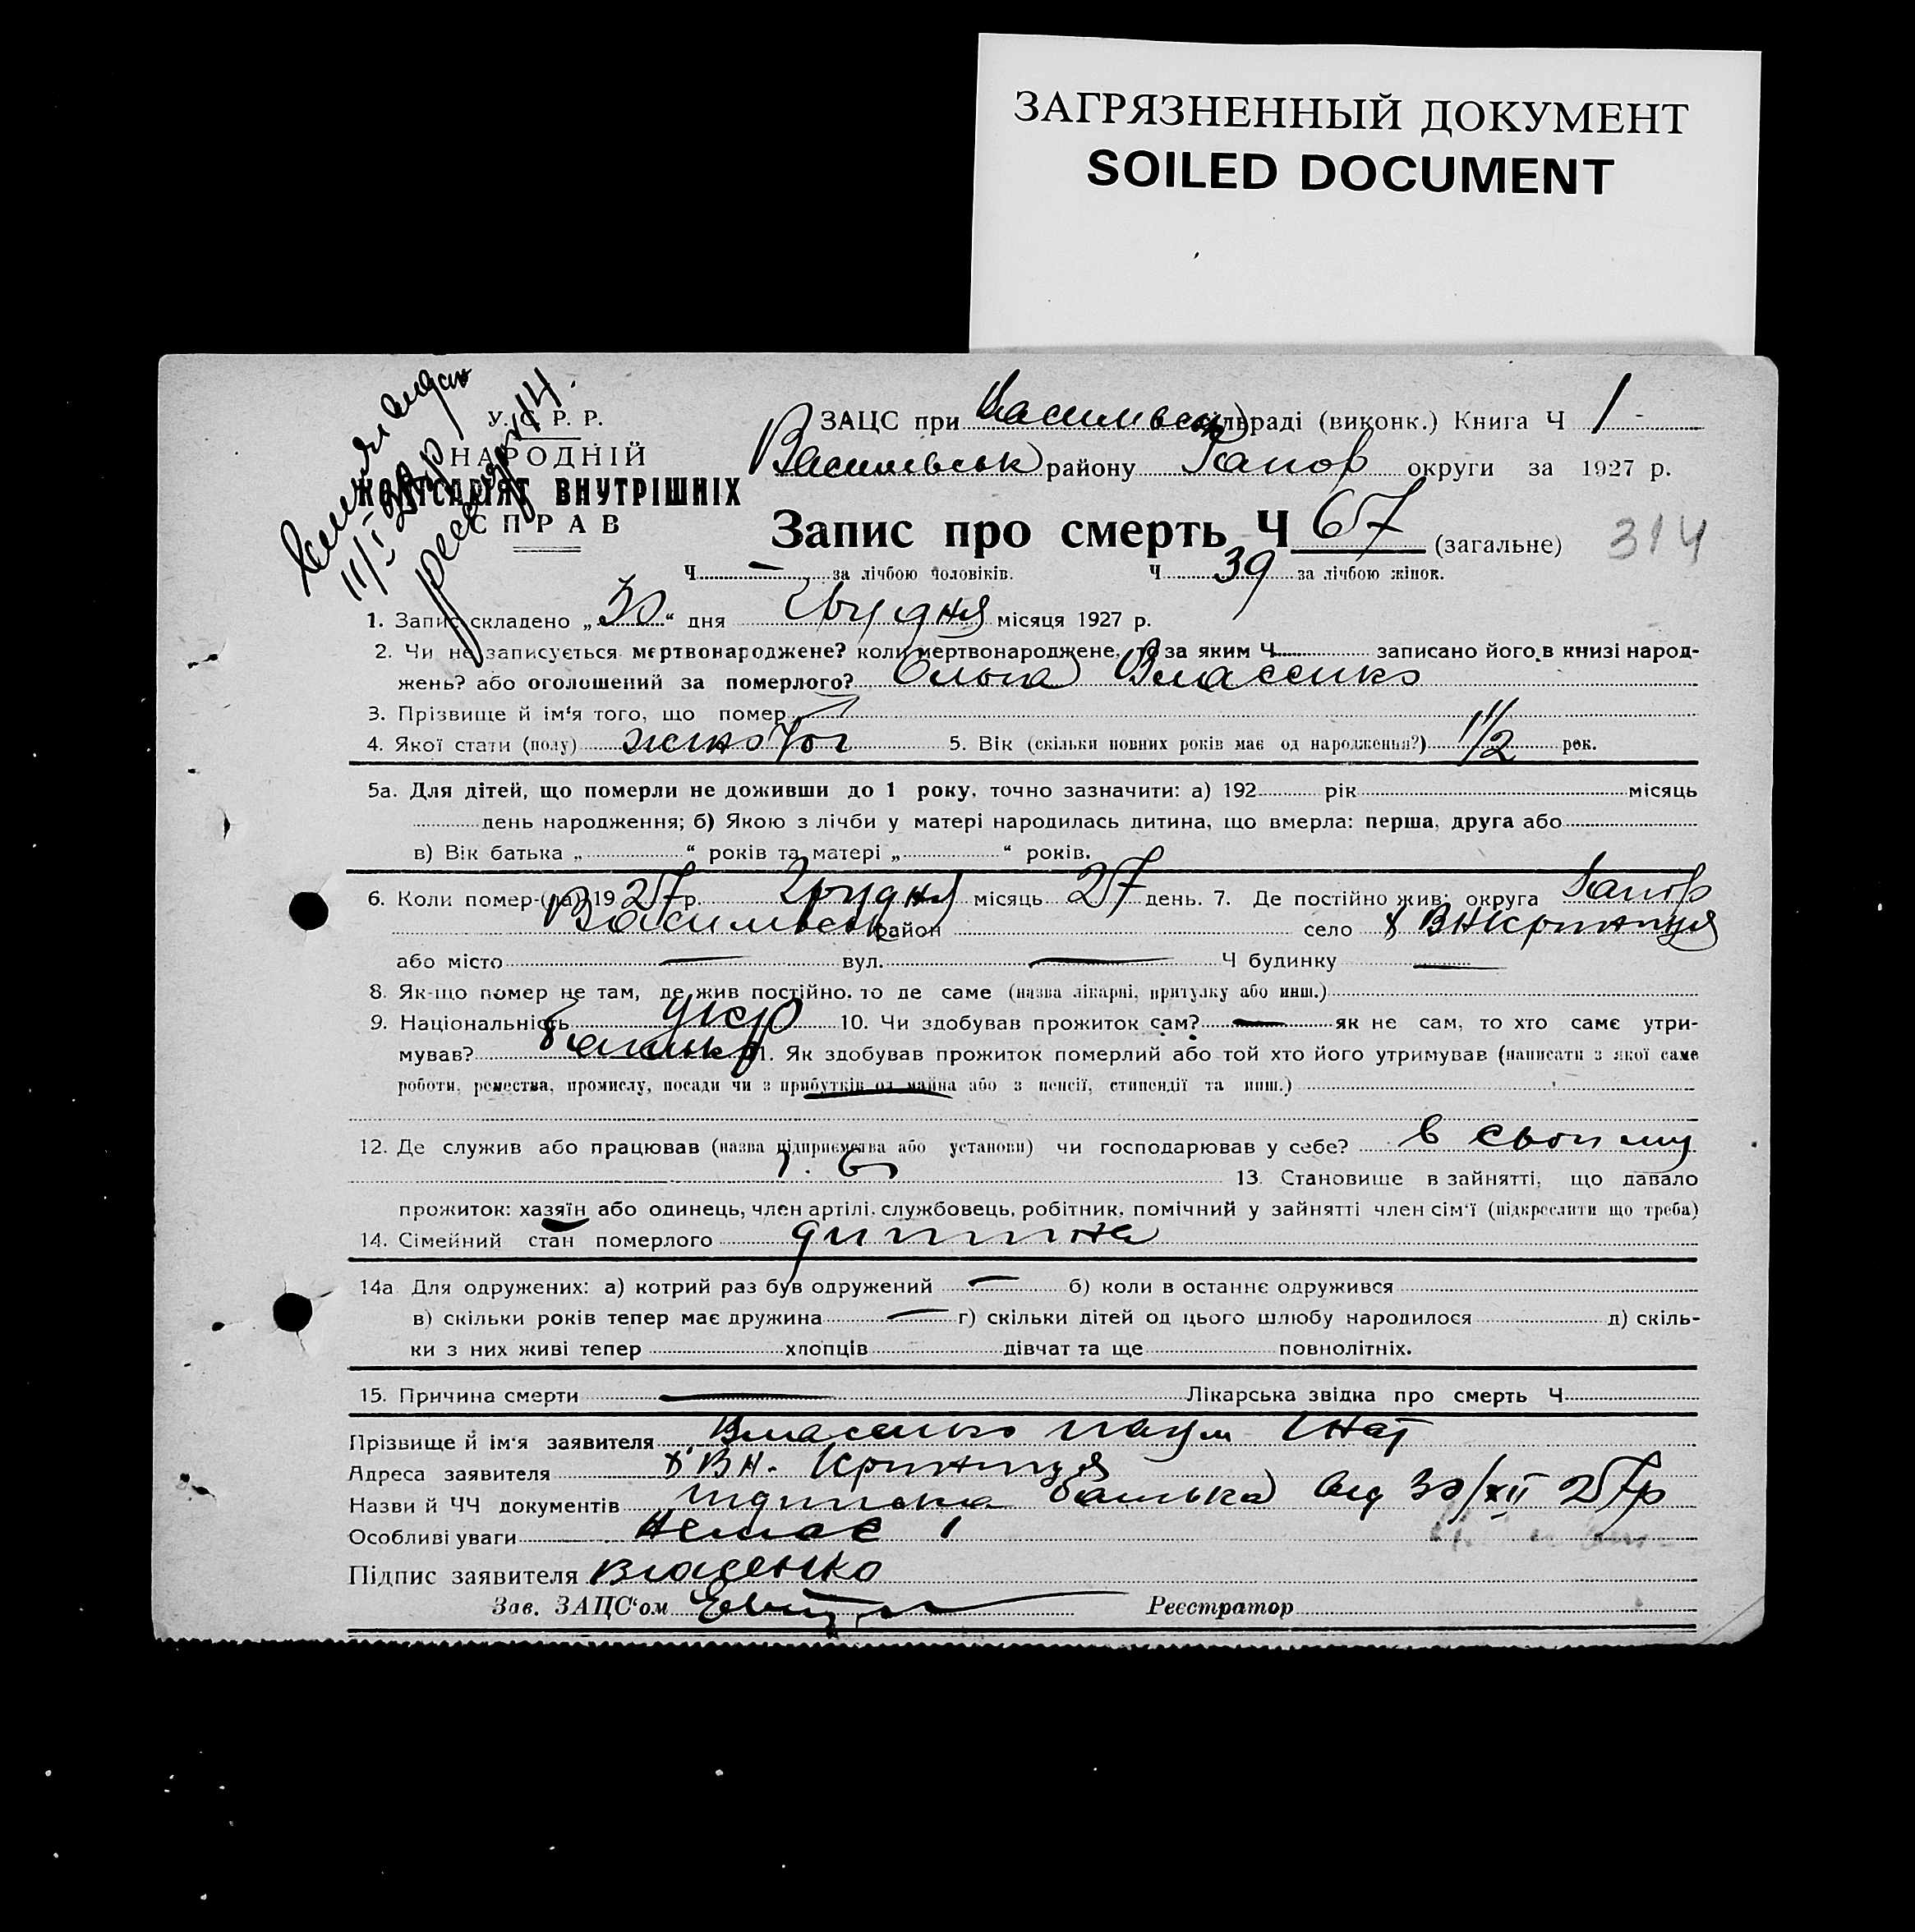 ЗАГРЯЗНЕННЫЙ ДОКУМЕНТ
SOILED DOCUMENT
У.С.Р.Р.
НАРОДНІЙ
КОМІСАРІЯТ ВНУТРІШНІХ
СПРАВ
11/I 28р
ЗАЦС при Васильвськ сільраді (виконк.) Книга Ч 1
Васильвськ району Запор округи за 1927 р.
Запис про смерть Ч 67 (загальне) 314
Ч — за лічбою чоловіків. Ч 39 за лічбою жінок.
1. Запис складено „30“ дня Грудня місяця 1927 р.
2. Чи не записується мертвонароджене? коли мертвонароджене, то за яким Ч записано його в книзі народ-
жень? або оголошений за померлого? Ольга Власенко
3. Прізвище й ім‘я того, що помер
4. Якої стати (полу) жіночої 5. Вік (скільки повних років має од народження?) 1 1/2 рок.
5а. Для дітей, що померли не доживши до 1 року, точно зазначити: а) 192 рік місяць
день народження; б) Якою з лічби у матері народилась дитина, що вмерла: перша, друга або
в) Вік батька „ “ років та матері „ “ років.
6. Коли помер-(ла) 1927 р. Грудня місяць 27 день. 7. Де постійно жив: округа Запор
Васильвськ район село х ВНКриниця
або місто — вул. — Ч будинку —
8. Як-що помер не там, де жив постійно. то де саме (назва лікарні, притулку або инш.)
9. Національність укр 10. Чи здобував прожиток сам? — як не сам, то хто саме утри-
мував? батько 11. Як здобував прожиток померлий або той хто його утримував (написати з якої саме
роботи, ремества, промислу, посади чи з прибутків од майна або з пенсії, стипендії та инш.)
12. Де служив або працював (назва підприємства або установи) чи господарював у себе? в своєму
13. Становище в зайнятті, що давало
прожиток: хазяїн або одинець, член артілі, службовець, робітник, помічний у зайнятті член сім‘ї (підкреслити що треба)
14. Сімейний стан померлого дитина
14а Для одружених: а) котрий раз був одружений — б) коли в останнє одружився
в) скільки років тепер має дружина — г) скільки дітей од цього шлюбу народилося д) скіль-
ки з них живі тепер хлопців дівчат та ще повнолітніх.
15. Причина смерти — Лікарська звідка про смерть Ч
Прізвище й ім‘я заявителя Власенко Наум Гнат
Адреса заявителя х ВН. Криниця
Назви й ЧЧ документів підписка батька від 30/XII 27р
Особливі уваги Немає
Підпис заявителя Власенко
Зав. ЗАЦС‘ом Реєстратор